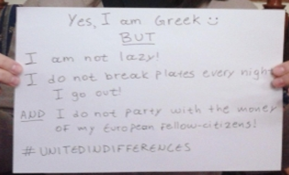 Yes, I am Greek :)
BUT
I am not lazy!
I do not break plates every night
I go out!
AND I do not party with the money
of my European fellow-citizens!
#UNITEDINDIFFERENCES